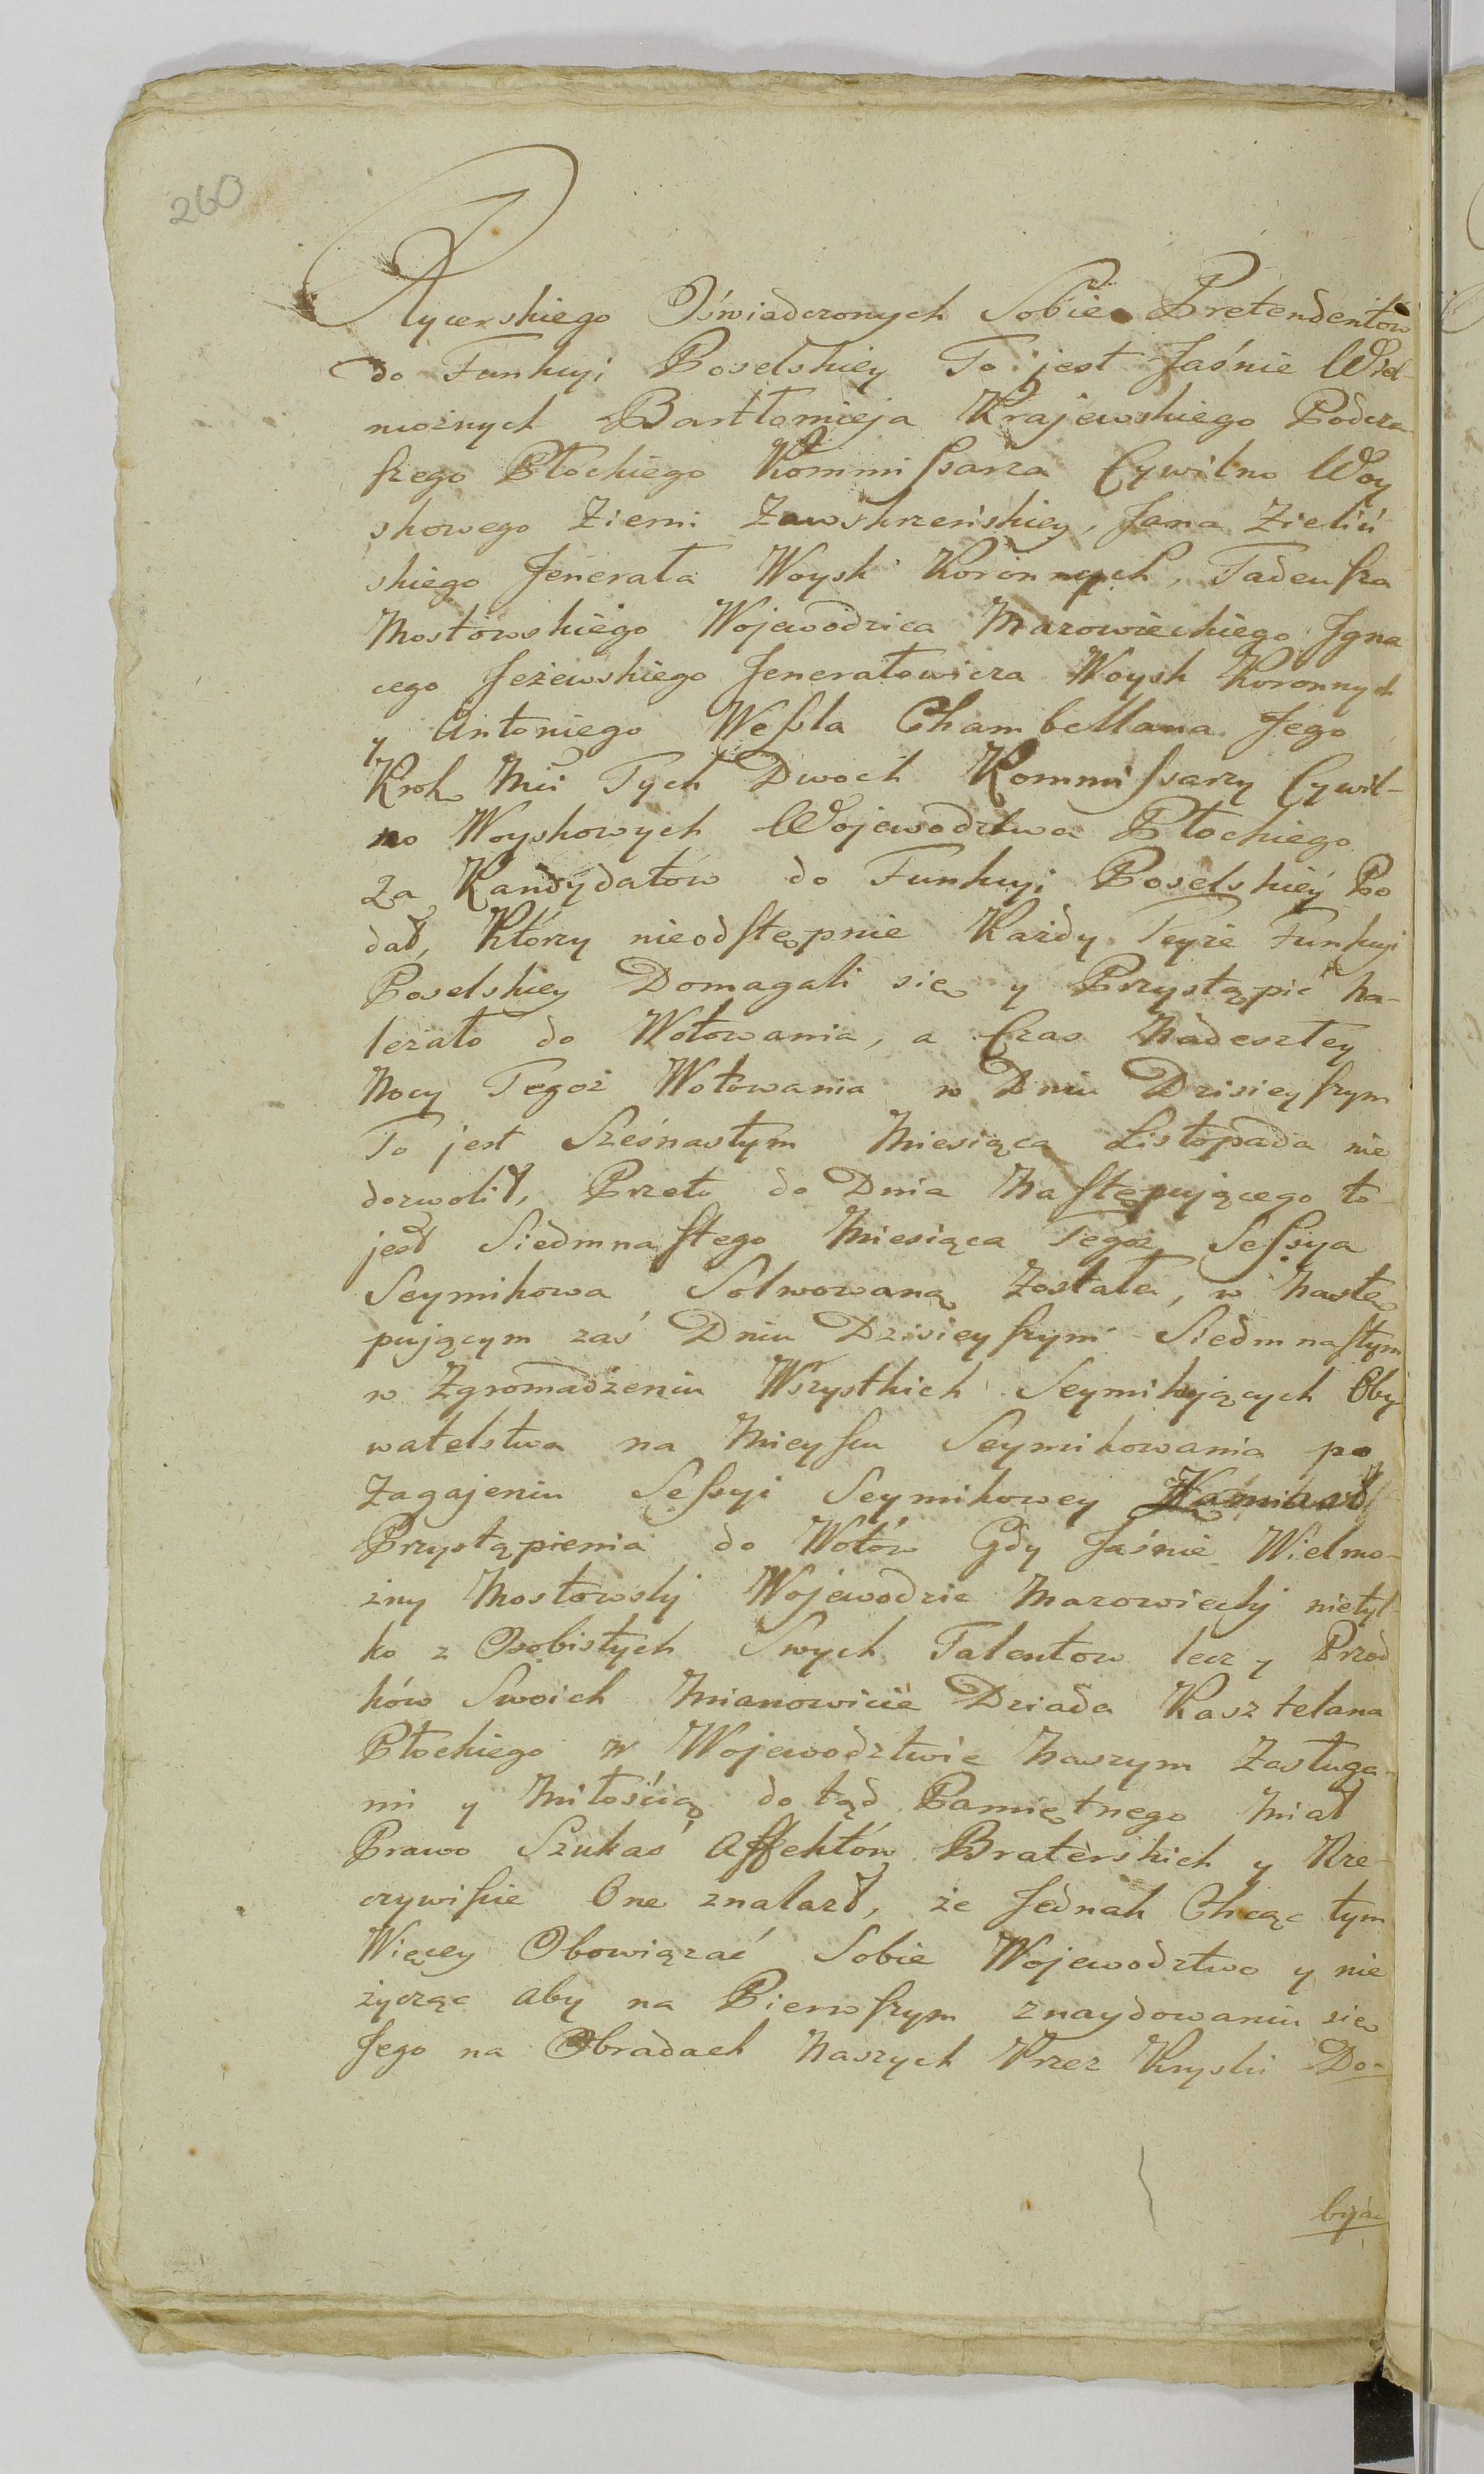 260
Rycerskiego Oświadczonych Sobie Pretendentów
do Funkcyi Poselskiey To jest Jaśnie Wiel-
możnych Bartłomieja Krajewskiego Podcza-
szego Płockiego Kommissarza Cywilno Woy
skowego Ziemi Zawskrzeńskiey, Jana Zieliń
skiego Jenerała Woysk Koronnych, Tadeusza
Mostowskiego Wojewodzica Mazowieckiego Igna
cego Jeżewskiego Jenerałowicza Woysk Koronnych
y Antoniego Wessla Chambellana Jego
Krok Mci Tych Dwoch Kommissarzy Cywil-
no Woyskowych Wojewodztwa Płockiego
za Kandydatów do Funkcyi Poselskiey Po
dał, Którzy nieodstępnie Każdy Teyże Funkcyi
Poselskiey Domagali się y Przystąpić na-
leżało do Wotowania, a Czas Nadeszłey
Nocy Tegoż Wotowania w Dniu Dzisieyszym
To jest Szesnastym Miesiąca Listopada nie
dozwolił, Przeto do Dnia Następującego to
jest Siedmnastego Miesiąca Tegoż Sessya
Seymikowa Solwowaną Została, w Nastę
pującym zaś Dniu Dzisieyszym Siedmnastym
w Zgromadzeniu Wszystkich Seymikujących Oby
watelstwa na Mieyscu Seymikowania po
Zagajeniu Sessyi Seymikowey
Przystąpienia do Wotów Gdy Jaśnie Wielmo-
żny Mostowskj Wojewodzic Mazowieckj nietyl-
ko z Osobistych Swych Talentow lecz y Przod
ków Swoich Mianowicie Dziada Kasztelana
Płockiego w Wojewodztwie Naszym Zasługa-
mi y Miłością do tąd Pamiętnego Miał
Prawo Szukać Affektów Braterskich y Rze-
czywiście One znalazł, że Jednak Chcąc tym
Więcey Obowiązać Sobie Wojewodztwo y nie
życząc aby na Pierwszym znaydowaniu się
Jego na Obradach Naszych Przez Kryski Do-
byać